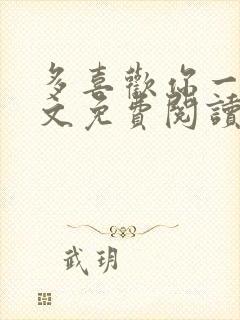 多喜歡你一
文免費閱讀
武玥